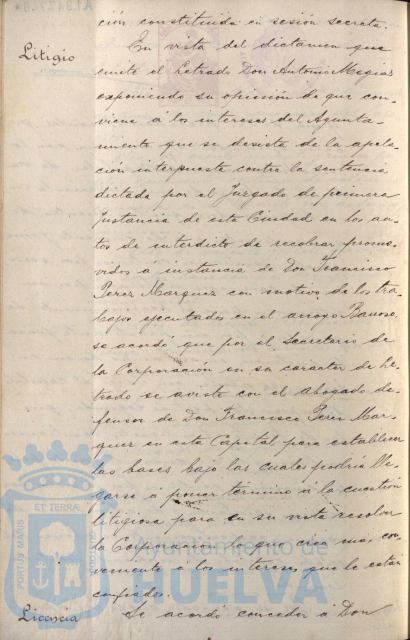 ción constituida en sesión secreta.
Litigio
En vista del dictamen que
emite el Letrado Don Antonio Megias
exponiendo su opinión de que con-
viene a los intereses del Ayunta-
miento que se desista de la apela-
ción interpuesta contra la sentencia
dictada por el Juzgado de primera
Instancia de esta Ciudad en los au-
tos de interdicto de recobrar promo-
vidos á instancia de Don Francisco
Perez Marquez con motivo de los tra-
bajos ejecutados en el arroyo
se acordó que por el Secretario de
la Corporación en su caracter de Le-
trado se aviste con el Abogado de-
fensor de Don Francisco Perez Mar-
quez en esta Capital para establecer
las bases bajo las cuales podria lle-
garse a poner termino á la cuestion
litigiosa para en su vista resolver
la Corporacion lo que crea mas con-
veniente á los intereses que le estan
confiados.
Licencia
Se acordó conceder á Don
PORTUS MARIS
ET TERRAE
CUSTODIA
Ayuntamiento de
HUELVA